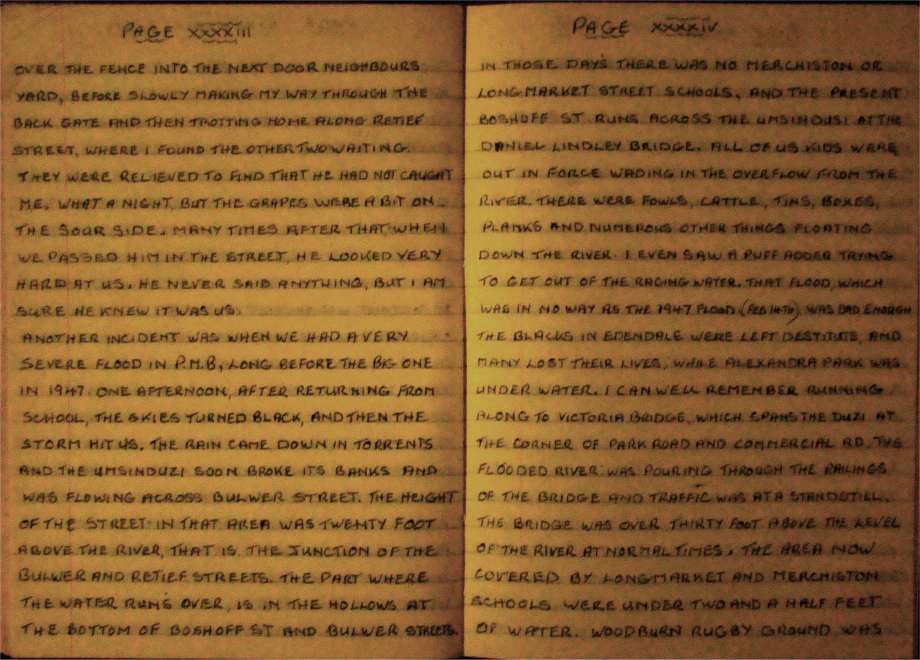 PAGE XXXXIII
OVER THE FENCE INTO THE NEXT DOOR NEIGHBOURS
YARD, BEFORE SLOWLY MAKING MY WAY THROUGH THE
BACK GATE AND THEN TROTTING HOME ALONG RETIEF
STREET, WHERE I FOUND THE OTHER TWO WAITING.
THEY WERE RELIEVED TO FIND THAT HE HAD NOT CAUGHT
ME. WHAT A NIGHT, BUT THE GRAPES WERE A BIT ON
THE SOUR SIDE. MANY TIMES AFTER THAT WHEN
WE PASSED HIM IN THE STREET, HE LOOKED VERY
HARD AT US. HE NEVER SAID ANYTHING, BUT I AM
SURE HE KNEW IT WAS US.
ANOTHER INCIDENT WAS WHEN WE HAD A VERY
SEVERE FLOOD IN P.M.B, LONG BEFORE THE BIG ONE
IN 1947. ONE AFTERNOON, AFTER RETURNING FROM
SCHOOL, THE SKIES TURNED BLACK, AND THEN THE
STORM HIT US. THE RAIN CAME DOWN IN TORRENTS
AND THE UMSINDUZI SOON BROKE ITS BANKS AND
WAS FLOWING ACROSS BULWER STREET. THE HEIGHT
OF THE STREET IN THAT AREA WAS TWENTY FOOT
ABOVE THE RIVER, THAT IS THE JUNCTION OF THE
BULWER AND RETIEF STREETS. THE PART WHERE
THE WATER RUNS OVER, IS IN THE HOLLOWS AT
THE BOTTOM OF BOSHOFF ST AND BULWER STREETS.
PAGE XXXXIV
IN THOSE DAYS THERE WAS NO MERCHISTON OR
LONGMARKET STREET SCHOOLS, AND THE PRESENT
BOSHOFF ST RUNS ACROSS THE UMSINDUSI AT THE
DANIEL LINDLEY BRIDGE. ALL OF US KIDS WERE
OUT IN FORCE WADING IN THE OVERFLOW FROM THE
RIVER. THERE WERE FOWLS, CATTLE, TINS, BOXES,
PLANKS AND NUMEROUS OTHER THINGS FLOATING
DOWN THE RIVER. I EVEN SAW A PUFF ADDER TRYING
TO GET OUT OF THE RAGING WATER. THAT FLOOD, WHICH
WAS IN NO WAY AS THE 1947 FLOOD (FEB 14TH), WAS BAD ENOUGH
THE BLACKS IN EDENDALE WERE LEFT DESTITUTE, AND
MANY LOST THEIR LIVES, WHILE ALEXANDRA PARK WAS
UNDER WATER. I CAN WELL REMEMBER RUNNING
ALONG TO VICTORIA BRIDGE, WHICH SPANS THE DUZI AT
THE CORNER OF PARK ROAD AND COMMERCIAL RD. THE
FLOODED RIVER WAS POURING THROUGH THE RAILINGS
OF THE BRIDGE AND TRAFFIC WAS AT A STANDSTILL.
THE BRIDGE WAS OVER THIRTY FOOT ABOVE THE LEVEL
OF THE RIVER AT NORMAL TIMES. THE AREA NOW
COVERED BY LONGMARKET AND MERCHISTON
SCHOOLS WERE UNDER TWO AND A HALF FEET
OF WATER. WOODBURN RUGBY GROUND WAS